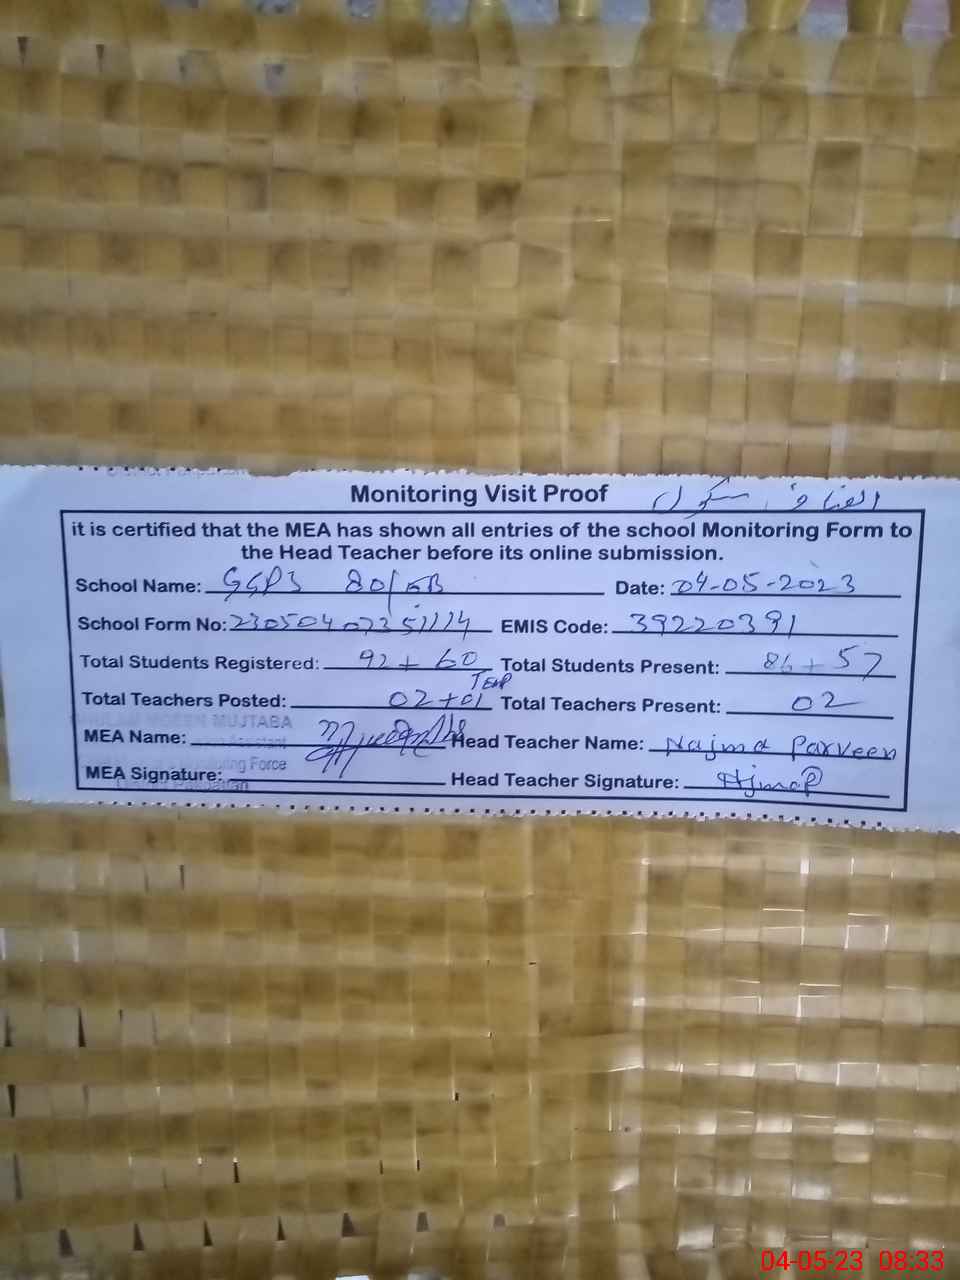 Monitoring Visit Proof سکول
it is certified that the MEA has shown all entries of the school Monitoring Form to
the Head Teacher before its online submission.
School Name: GGPS 80/EB Date: 04-05-2023
School Form No: EMIS Code: 39220391
Total Students Registered: 92 + 60 Total Students Present: 86 + 57
TEMP
Total Teachers Posted: 02 + 01 Total Teachers Present: 02
MUJTABA
MEA Name: Head Teacher Name: Najma Parveen
Monitoring Force
MEA Signature: Head Teacher Signature: NjmaP
04-05-23 08:33